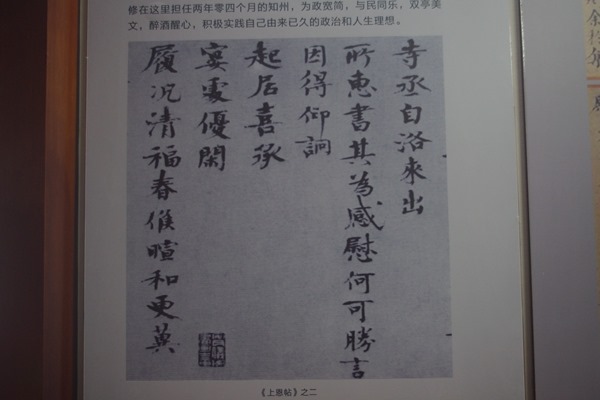 修在这里担任两年零四个月的知州，为政宽简，与民同乐，双亭美
文，醉酒醒心，积极实践自己由来已久的政治和人生理想。
寺丞自洛来出
所惠書其為感慰何可勝言
因得仰詗
起居喜承
宴處優閑
履况清福春候暄和更冀
《上恩帖》之二